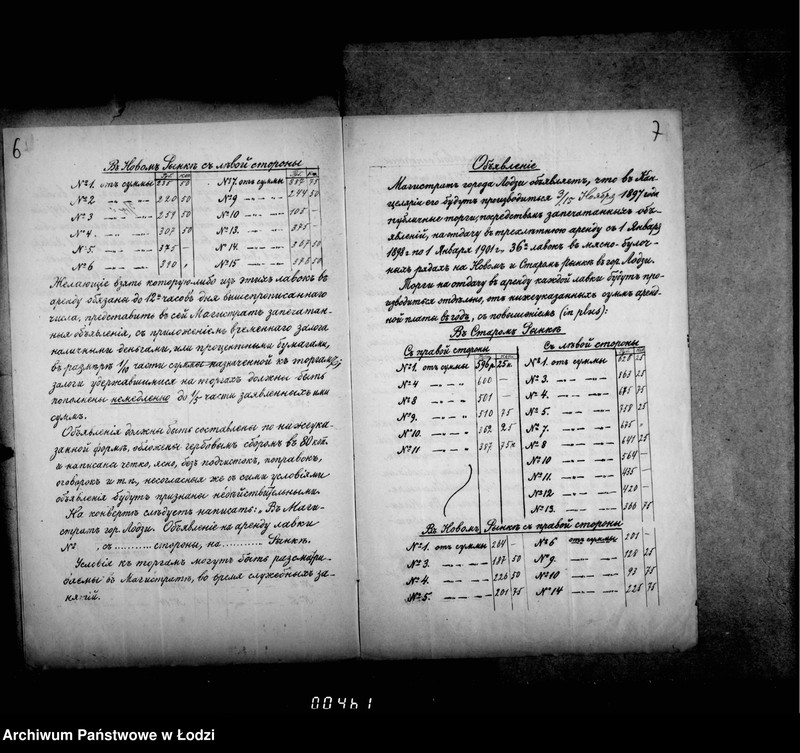 6
Въ Новомъ Рынкѣ съ лѣвой стороны
Руб. коп. Руб. коп.
№ 1. отъ суммы 50 № 7. отъ суммы 357 75
№ 2 — — — 220 50 № 9 — — — 244 50
№ 3 — — — 251 50 № 10 — — — 105 —
№ 4. — — — 307 50 № 13. — — — 375 —
№ 5. — — — 325 — № 14. — — — 367 50
№ 6 — — — 320 № 15 — — — 378 50
Желающіе взять которую либо изъ этихъ лавокъ въ
аренду обязаны до 12 часовъ дня вышепрописаннаго
числа, представить въ сей Магистратъ запечатан-
ныя объявленія, съ приложеніемъ временнаго залога
наличными деньгами, или процентными бумагами,
въ размѣрѣ 1/10 части суммы назначенной къ торгамъ;
залоги удержавшимися на торгахъ должны быть
пополнены немедленно до части заявленныхъ ими
суммъ.
Объявленія должны быть составлены по нижеука-
занной формѣ, обложены гербовымъ сборомъ въ 80 коп.
и написаны четко, ясно, безъ подчистокъ, поправокъ,
оговорокъ и т.п., несогласныя же съ сими условіями
объявленія будутъ признаны недѣйствительными.
На конвертѣ слѣдуетъ написать: „Въ Маги-
стратъ гор. Лодзи. Объявленіе на аренду лавки
№ , съ ........... стороны, на .......... Рынкѣ.
Условія къ торгамъ могутъ быть разсматри-
ваемы въ Магистратѣ, во время служебныхъ за-
нятій.
7
Объявленіе
Магистратъ города Лодзи объявляетъ, что въ Кан-
целяріи его будутъ производиться 3/15 Ноября 1897 года
публичные торги, посредствомъ запечатанныхъ объ-
явленій, на отдачу въ трехлѣтнюю аренду съ 1 Января
1898 г. по 1 Января 1901 г., 36 лавокъ въ мясно-булоч-
ныхъ рядахъ на Новомъ и Старомъ рынкѣ въ гор. Лодзи.
Торги на отдачу въ аренду каждой лавки будутъ про-
изводиться отдѣльно, отъ нижеуказанныхъ суммъ аренд-
ной платы въ годъ, съ повышеніемъ (in plus):
Въ Старомъ Рынкѣ
Съ правой стороны Съ лѣвой стороны
№ 1. отъ суммы 596 р. 25 к. № 1. отъ суммы 828 25
№ 4 — — — 600 — № 3. — — — 863 25
№ 8 — — — 501 — № 4. — — — 675 75
№ 9. — — — 510 75 № 5. — — — 758 25
№ 10. — — — 362 25 № 7. — — — 675
№ 11 — — — 357 75 к. № 8 — — — 641 25
№ 10 — — — 564 —
№ 11. — — — 435 —
№ 12 — — — 420 —
№ 13. — — — 366 75
Въ Новомъ Рынкѣ съ правой стороны
№ 1. отъ суммы 264 — № 6 отъ суммы 201 —
№ 3. — — — 187 50 № 9. — — — 128 25
№ 4. — — — 226 50 № 10 — — — 93 75
№ 5. — — — 201 75 № 14 — — — 225 75
00461
Archiwum Państwowe w Łodzi